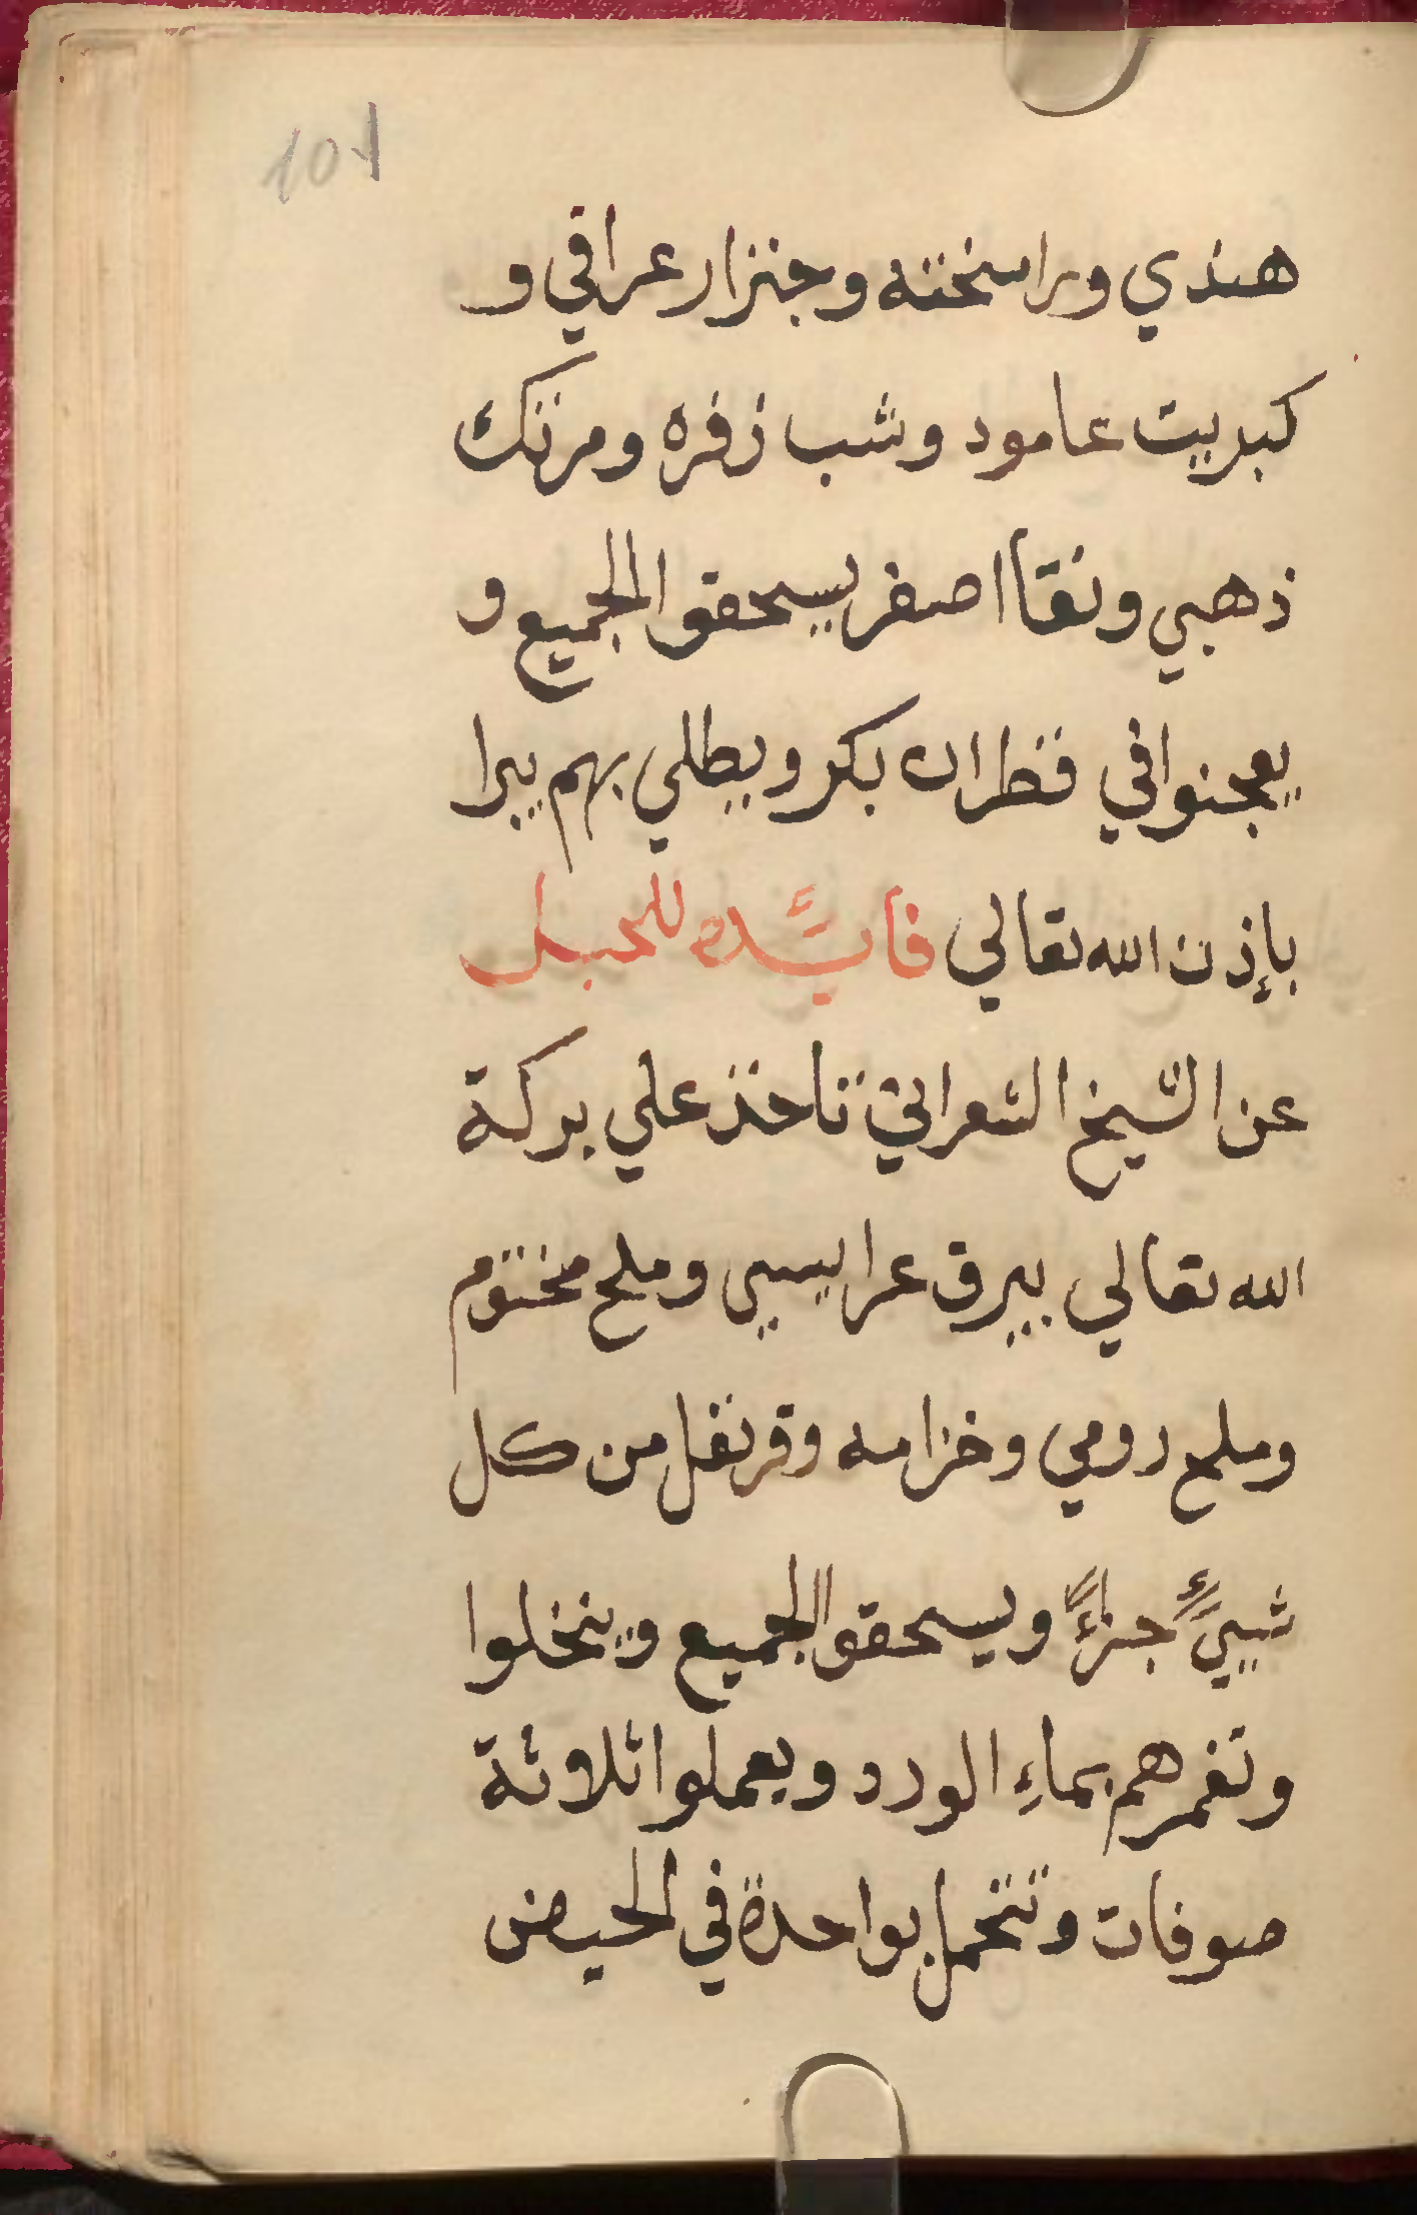 101
هندي وراسخته وجنزار عراقي و
كبريت عامود وشب زفره ومرتك
ذهبي ونقا اصفر يسحقوا الجميع و
يعجنوا في قطران بكر ويطلي بهم يبرا
بإذن الله تعالي فايدة للحبل
عن الشيخ الشعراني تاخذ علي بركة
الله تعالي بيرق عرايسي وملح مختوم
وملح رومي وخزامه وقرنفل من كل
شيئٍ جزءً ويسحقوا الجميع وينخلوا
وتغمرهم بماءِ الورد ويعملوا ثلاثة
صوفات وتتحمل بواحدة في الحيض